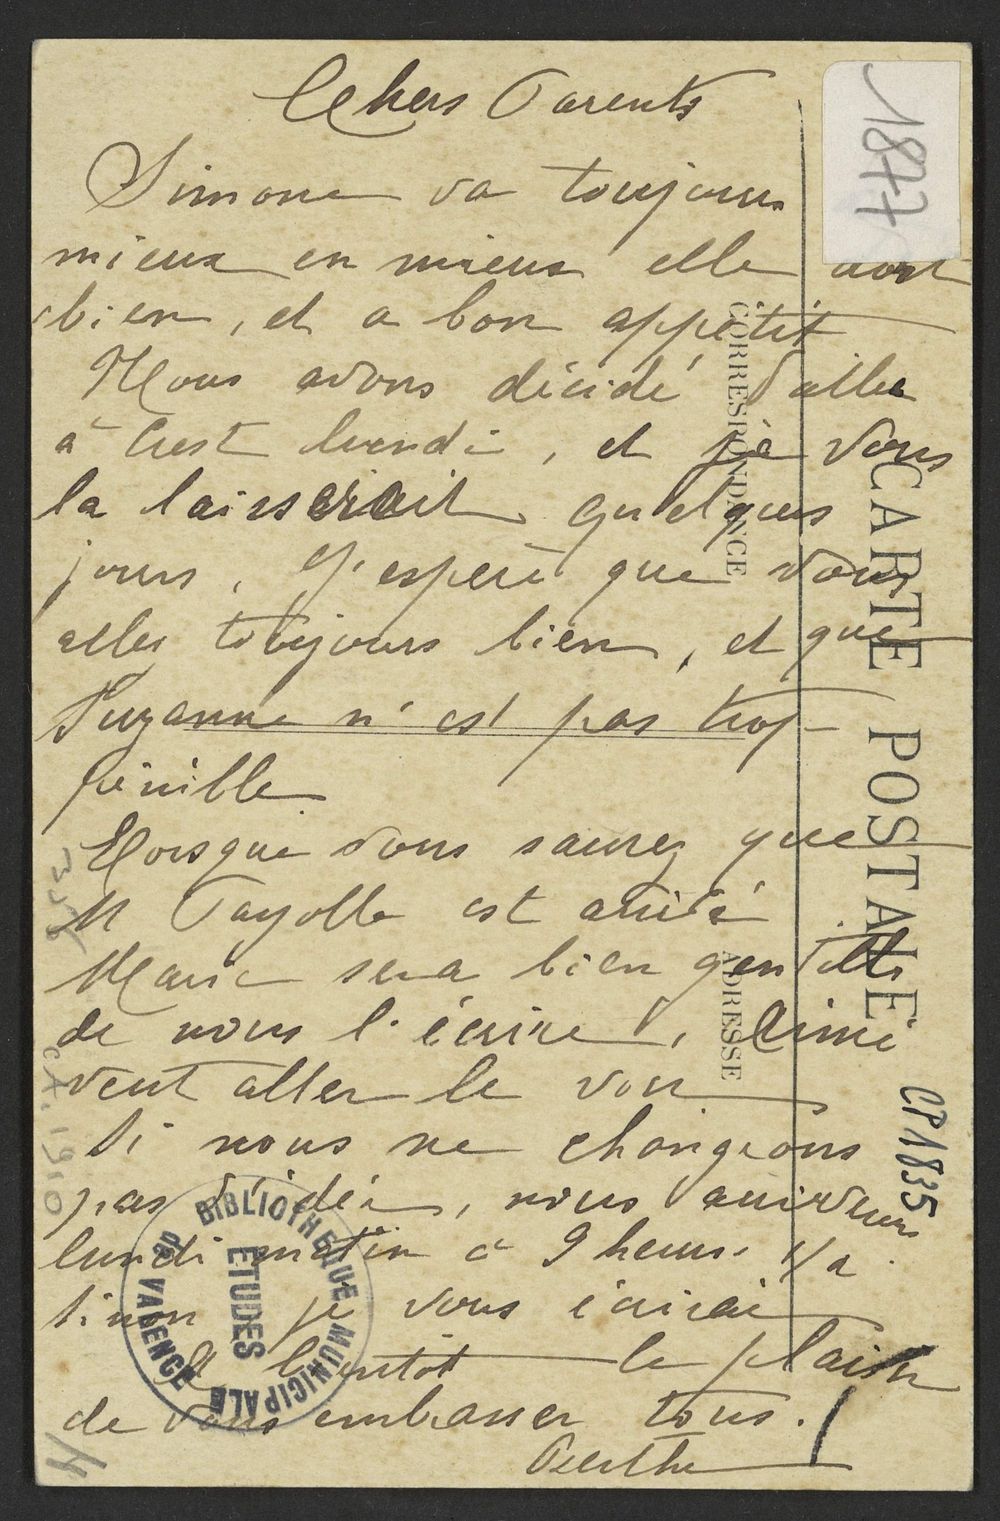 Chers Parents
Simone va toujours
mieux en mieux elle dort
bien, et a bon appétit
Nous avons décidé d'aller
à Crest lundi, et je vous
la laisserait quelques
jours, J'espère que vous
allez toujours bien, et que
Suzanne n'est pas trop
pénible
Lorsque vous saurez que
M Fayolle est arrivé
Marie sera bien gentille
de nous l'écrire,
veut aller le voir
Si nous ne changeons
pas d'idée, nous arriverons
lundi matin à 9 heures
sinon je vous écrirai
A bientôt le plaisir
de vous embrasser tous.
Berthe
1877
CORRESPONDANCE
CARTE POSTALE
ADRESSE
CP1835
BIBLIOTHEQUE MUNICIPALE
de VALENCE
ETUDES
ca. 1910